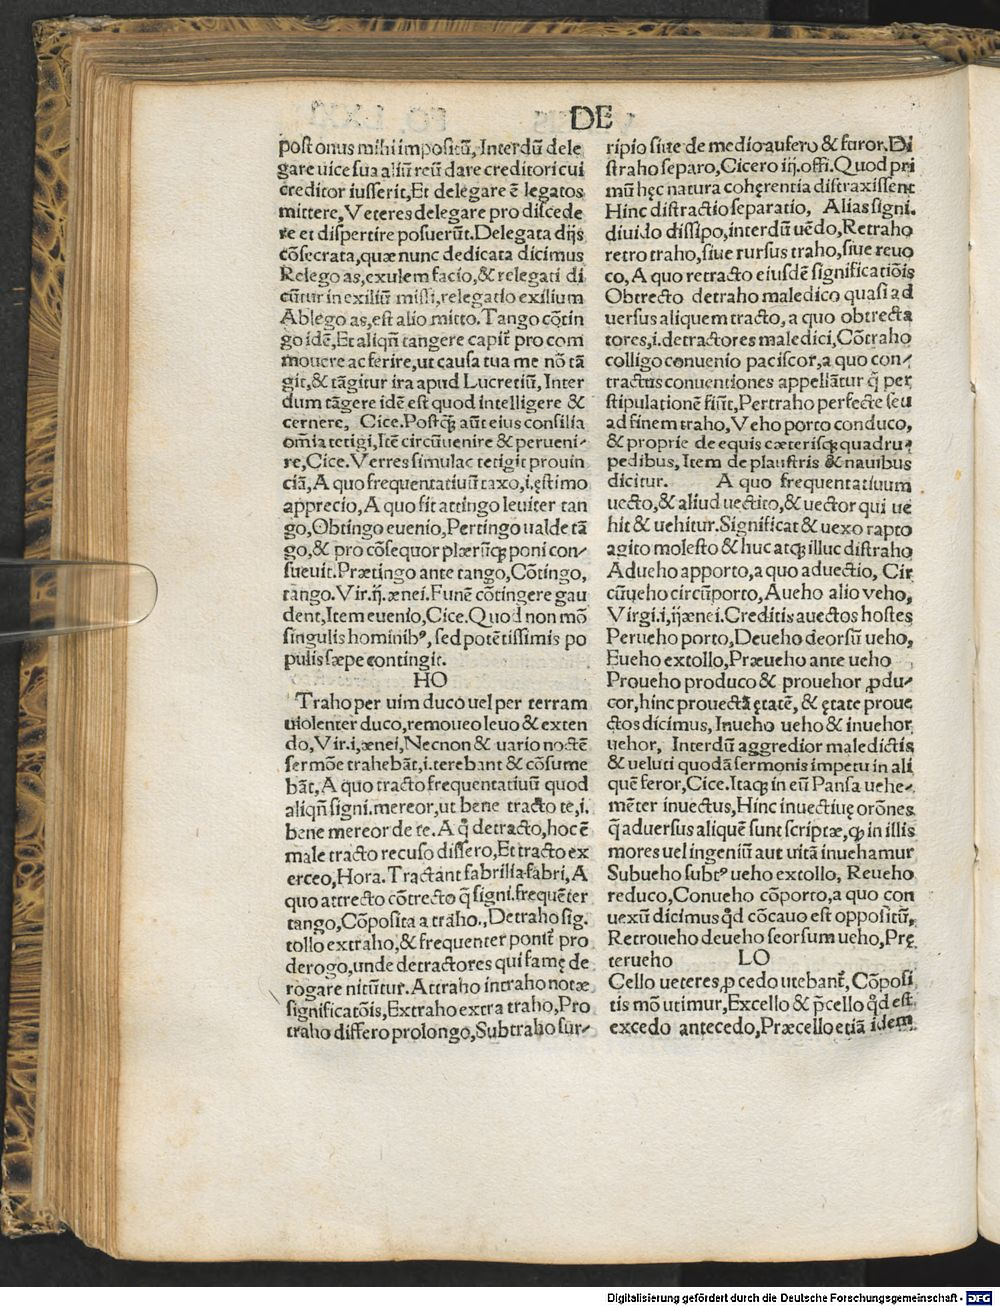 DE
post onus mihi impositũ, Interdũ dele
gare uice sua aliũ reũ dare creditori cui
creditor iusserit, Et delegare ẽ legatos
mittere, Veteres delegare pro discede
re et dispertire posuerũt. Delegata dijs
cõsecrata, quæ nunc dedicata dicimus
Relego as, exulem facio, & relegati di
cũtur in exiliũ missi, relegatio exilium
Ablego as, est alio mitto. Tango cõtin
go idẽ, Et aliqñ tangere capit̃ pro com
mouere ac ferire, ut causa tua me nõ tã
git, & tãgitur ira apud Lucretiũ, Inter
dum tãgere idẽ est quod intelligere &
cernere, Cice. Postq̃ aũt eius consilia
omĩa tetigi, Itẽ circũuenire & perueni-
re, Cice. Verres simulac tetigit prouin
ciã, A quo frequentatiuũ taxo, i. ęstimo
apprecio, A quo fit attingo leuiter tan
go, Obtingo euenio, Pertingo ualde tã
go, & pro cõsequor plærũq; poni con-
sueuit. Prætingo ante tango, Cõtingo,
tango. Vir. ij. ænei. Funẽ cõtingere gau
dent, Item euenio, Cice. Quod non mõ
singulis hominibꝰ, sed potẽtissimis po
pulis sæpe contingit.
HO
Traho per uim duco uel per terram
uiolenter duco, remoueo leuo & exten
do, Vir. i, ænei, Necnon & uario noctẽ
sermõe trahebãt, i. terebant & cõsume
bãt, A quo tracto frequentatiuũ quod
aliqñ signi. mereor, ut bene tracto te, i.
bene mereor de te. A q̃ detracto, hoc ẽ
male tracto recuso differo, Et tracto ex
erceo, Hora. Tractãnt fabrilia fabri, A
quo attrecto cõtrecto q̃ signi. frequẽter
tango, Cõposita a traho., Detraho sig.
tollo extraho, & frequenter ponit̃ pro
derogo, unde detractores qui famę de
rogare nitũtur. Attraho intraho notæ
significatõis, Extraho extra traho, Pro
traho differo prolongo, Subtraho sur-
ripio siue de medio aufero & furor. Di
straho separo, Cicero iij. offi. Quod pri
mũ hęc natura cohęrentia distraxissent
Hinc distractio separatio, Alias signi.
diuido dissipo, interdũ uẽdo, Retraho
retro traho, siue rursus traho, siue reuo
co, A quo retracto eiusdẽ significatiõis
Obtrecto detraho maledico quasi ad
uersus aliquem tracto, a quo obtrecta
tores, i. detractores maledici, Cõtraho
colligo conuenio paciscor, a quo con-
tractus conuentiones appellãtur q̃ per
stipulationẽ fiũt, Pertraho perfecte seu
ad finem traho, Veho porto conduco,
& proprie de equis cæterisq; quadru-
pedibus, Item de plaustris & nauibus
dicitur. A quo frequentatiuum
uecto, & aliud uectito, & uector qui ue
hit & uehitur. Significat & uexo rapto
agito molesto & huc atq; illuc distraho
Adueho apporto, a quo aduectio, Cir
cũueho circũporto, Aueho alio veho,
Virgi. i, ij ænei. Creditis auectos hostes
Perueho porto, Deueho deorsũ ueho,
Eueho extollo, Præueho ante ueho
Proueho produco & prouehor ꝓdu-
cor, hinc prouectã ętatẽ, & ętate proue
ctos dicimus, Inueho ueho & inuehor
uehor, Interdũ aggredior maledictis
& ueluti quodã sermonis impetu in ali
quẽ feror, Cice. Itaq; in eũ Pansa uehe-
mẽter inuectus, Hinc inuectiuę orõnes
q̃ aduersus aliquẽ sunt scriptæ, ꝙ in illis
mores uel ingeniũ aut uitã inuehamur
Subueho subtꝰ ueho extollo, Reueho
reduco, Conueho cõporto, a quo con
uexũ dicimus qd̃ cõcauo est oppositũ,
Retroueho deueho seorsum ueho, Prę
terueho LO
Cello ueteres, ꝓ cedo utebant̃, Cõposi
tis mõ utimur, Excello & p̃cello qd̃ est
excedo antecedo, Præcello etiã idem
Digitalisierung gefördert durch die Deutsche Forschungsgemeinschaft - DFG